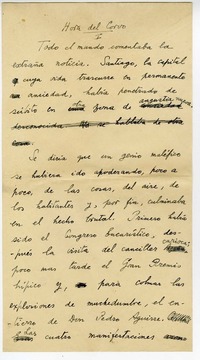 Hora del Corvo
I
Todo el mundo comentaba la
extraña noticia. Santiago, la capital
cuya vida transcurre en permanente
ansiedad, había penetrado de
súbito en otra zona de angustia
desconocida. No se hablaba de otra
cosa.
Se diría que un genio maléfico
se hubiera ido apoderando, poco a
poco, de las cosas, del aire, de
los habitantes y, por fin, culminaba
en el hecho brutal. Primero había
sido el Congreso Eucarístico, des-
pués la visita del canciller
poco más tarde el Gran Premio
hípico y, para colmar las
explosiones de muchedumbre, el en-
tierro de Don Pedro Aguirre.
cuatro manifestaciones